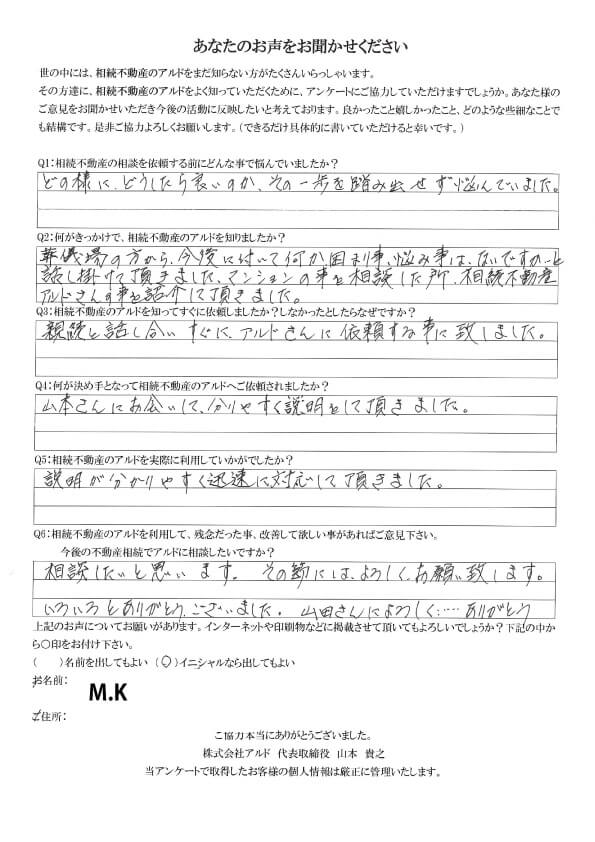 あなたのお声をお聞かせください
世の中には、相続不動産のアルドをまだ知らない方がたくさんいらっしゃいます。
その方達に、相続不動産のアルドをよく知っていただくために、アンケートにご協力していただけますでしょうか。あなた様の
ご意見をお聞かせいただき今後の活動に反映したいと考えております。良かったこと嬉しかったこと、どのような些細なことで
も結構です。是非ご協力よろしくお願いします。（できるだけ具体的に書いていただけると幸いです。）
Q1：相続不動産の相談を依頼する前にどんな事で悩んでいましたか？
どの様に、どうしたら良いのか、その一歩を踏み出せず悩んでいました。
Q2：何がきっかけで、相続不動産のアルドを知りましたか？
葬儀場の方から、今後に付いて何か困まり事、悩み事は、ないですか、と
話し掛けて頂きました、マンションの事を相談した所、相続不動産
アルドさんの事を紹介して頂きました。
Q3：相続不動産のアルドを知ってすぐに依頼しましたか？しなかったとしたらなぜですか？
親族と話し合いすぐに、アルドさんに依頼する事に致しました。
Q4：何が決め手となって相続不動産のアルドへご依頼されましたか？
山本さんにお会いして、分りやすく説明をして頂きました。
Q5：相続不動産のアルドを実際に利用していかがでしたか？
説明が分かりやすく迅速に対応して頂きました。
Q6：相続不動産のアルドを利用して、残念だった事、改善して欲しい事があればご意見下さい。
今後の不動産相続でアルドに相談したいですか？
相談したいと思います。その節には、よろしく、お願い致します。
いろいろとありがとうございました。山田さんによろしく……ありがとう
上記のお声についてお願いがあります。インターネットや印刷物などに掲載させて頂いてもよろしいでしょうか？下記の中か
ら〇印をお付け下さい。
（　）名前を出してもよい（〇）イニシャルなら出してもよい
お名前：
M.K
ご住所：
ご協力本当にありがとうございました。
株式会社アルド 代表取締役 山本 貴之
当アンケートで取得したお客様の個人情報は厳正に管理いたします。